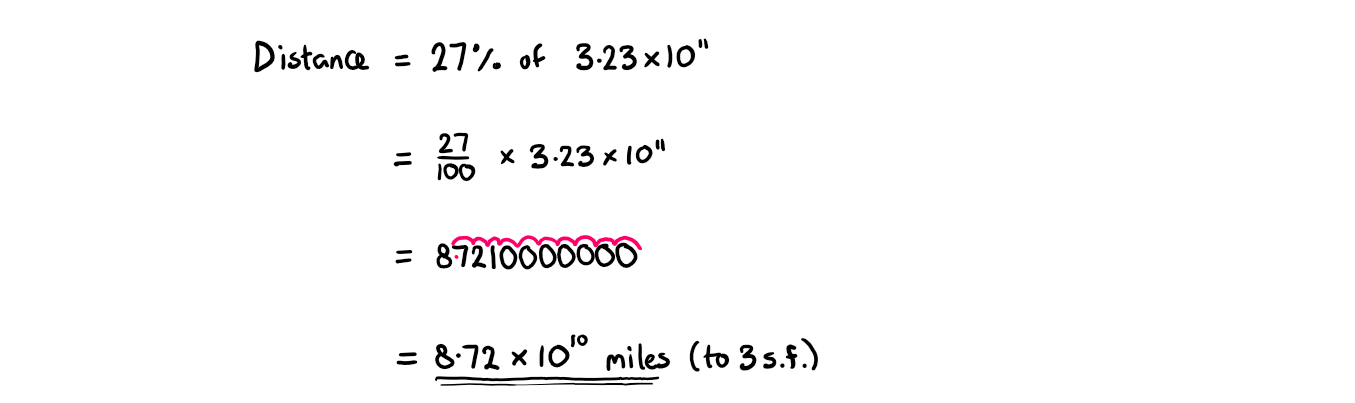 Distance = 27% of 3.23 × 10¹¹
= 27/100 × 3.23 × 10¹¹
= 87210000000
= 8.72 × 10¹⁰ miles (to 3 s.f.)